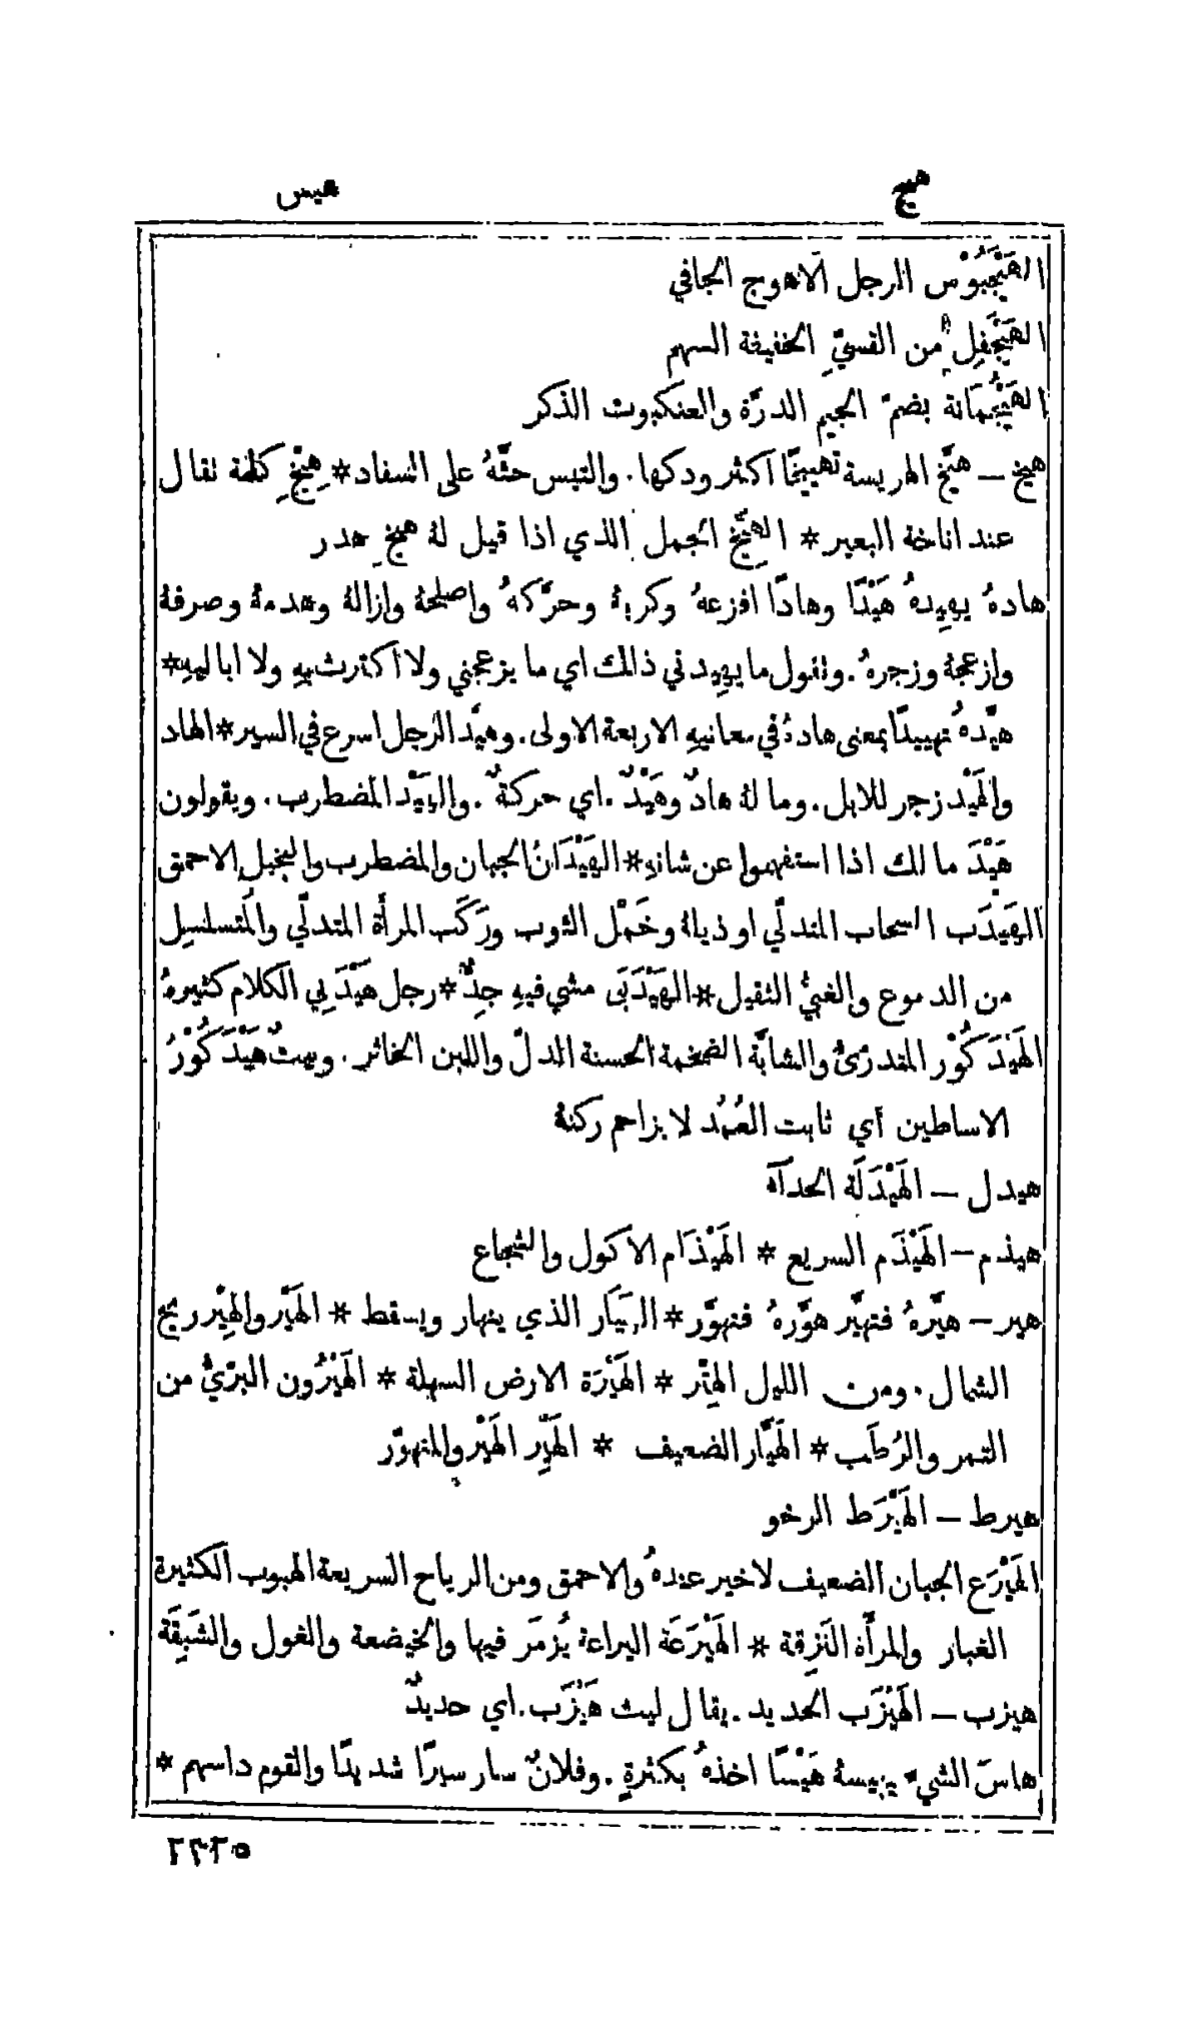 هيج
هيس
الهَيْجَبُوْس الرجل الاهوج الجافي
الهَيْجَفِل من القسيِّ الخفيفة السهم
الهَيْجُمَانة بضمّ الجيم الدرّة والعنكبوت الذكر
هيخ – هيَّخ الهريسة تهييخًا اكثر ودكها. والتيس حثَّهُ على السفاد * هِيْخِ كلمة تقال
عند اناخة البعير * الهِيَّخ الجمل الذي اذا قيل لهُ هيخِ هدر
هادهُ يهِيدهُ هَيْدًا وهادًا افزعهُ وكربهُ وحرَّكهُ واصلحهُ وازالهُ وهدمهُ وصرفهُ
وازعجهُ وزجرهُ. وتقول ما يهِيدني ذالك اي ما يزعجني ولا اكترث بهِ ولا اباليهِ *
هيَّدهُ تهييدًا بمعنى هادهُ في معانيهِ الاربعة الاولى. وهيَّد الرجل اسرع في السير * الهاد
والهَيْد زجر للابل. وما لهُ هادٌ وهَيْدٌ. اي حركةٌ. والهَيْد المضطرب. ويقولون
هَيْدَ مالك اذا استفهموا عن شانهِ * الهَيْدَانُ الجبان والمضطرب والبخيل الاحمق
الهَيْدَب السحاب المتدلّي او ذيلهُ وخَمْل الثوب ورَكَب المرأة المتدلّي والمُتسلسِل
من الدموع والغبيُّ الثقيل * الهَيْدَبَى مشي فيهِ جِدٌّ * رجل هَيْدَبي الكلام كثيرهُ
الهَيْدَكُوْر المتدرّئ والشابَّة الضخمة الحسنة الدلّ واللبن الخاثر. وبيتٌ هَيْدَكُوْرُ
الاساطين اي ثابت العُمُد لا يزاحم ركنهُ
هيدل – الهَيْدَلَة الحدآه
هيذم – الهَيْذَم السريع * الهَيْذَام الاكول والشجاع
هير – هيَّرهُ فتهيَّر هوَّرهُ فتهوَّر * الهَيَار الذي ينهار ويسقط * الهَيْر والهِيْر ريح
الشمال. ومن الليل الهِتْر * الهَيْرَة الارض السهلة * الهَيْرُون البرّيُّ من
التمر والرُطَب * الهَيَّار الضعيف * الهَيِّر الهَيْر والمتهوّر
هيرط – الهَيْرَط الرخو
الهَيْرَع الجبان الضعيف لا خير عندهُ والاحمق ومن الرياح السريعة الهبوب الكثيرة
الغبار والمرأَة النَزِقة * الهَيْرَعَة اليراعة يُزمَر فيها والخيضعة والغول والشَبِقَة
هيزب – الهَيْزَب الحديد. يقال ليث هَيْزَب. اي حديدٌ
هاسَ الشيءَ يهِيسهُ هَيْسًا اخذهُ بكثرةٍ. وفلانٌ سار سيرًا شديدًا والقوم داسهم *
٢٢٢٥